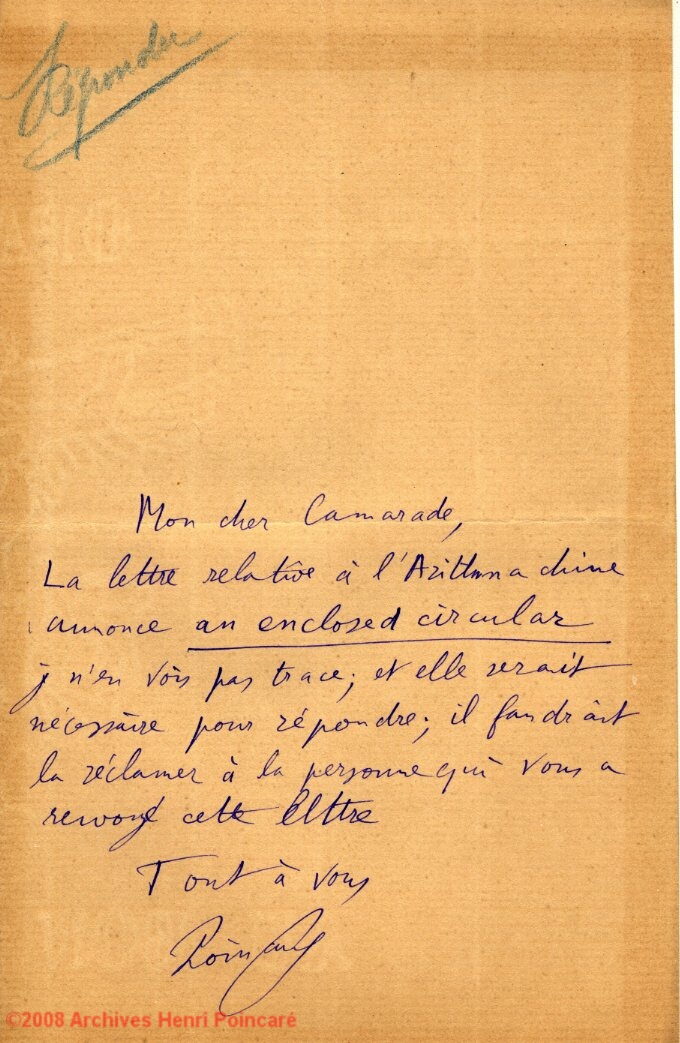 Répondu
Mon cher Camarade,
La lettre relative à l'Arithmachine
annonce an enclosed circular
je n'en vois pas trace; et elle serait
nécessaire pour répondre; il faudrait
la réclamer à la personne qui vous a
renvoyé cette lettre
Tout à vous
Poincaré
©2008 Archives Henri Poincaré